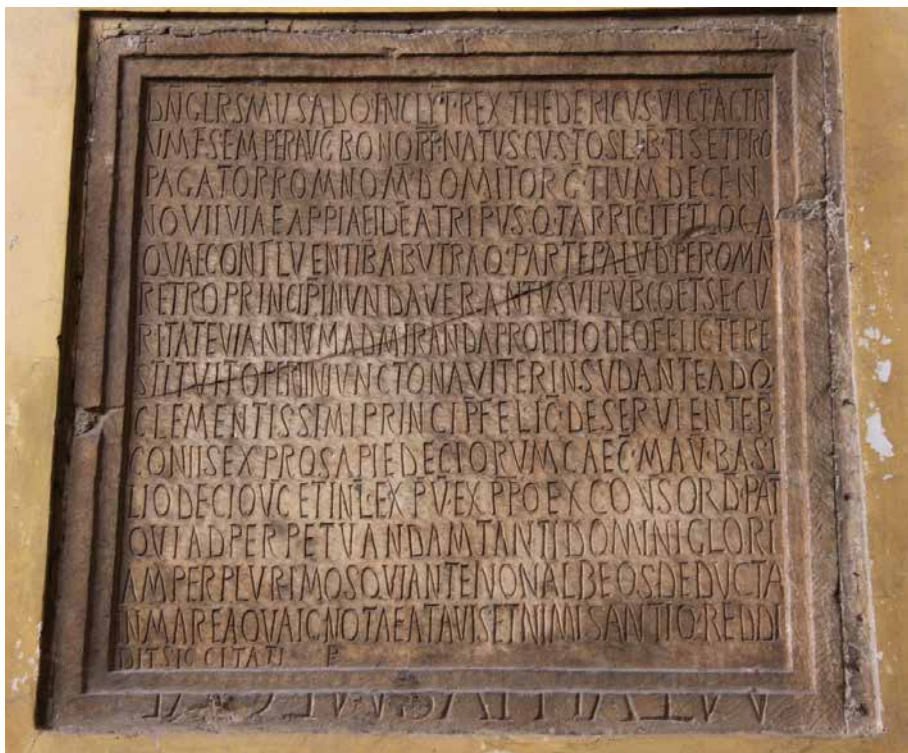 DN̄ GLRSMUS ADQ· INCLYT· REX THEDERICVS VICT· AC TRI
UMF· SEMPER AUG BONO RP· NATUS CVSTOS LIB·TIS ET PRO
PAGATOR ROM NOM· DOMITOR GTIUM DECEN
NOVII VIAE APPIAE ID E A TRIP VSQ· TARRIC IT ET LOCA
QVAE CONFLVENTIB AB VTRAQ· PARTE PALVD PER OMN̄
RETRO PRINCIP INVNDAVERANT VSVI PVBCO ET SECV
RITATE VIANTIVM ADMIRANDA PROPITIO DEO FELICTE RE
STITVIT OPERI INIVNCTO NAVITER INSVDANTE ADQ
CLEMENTISSIMI PRINCIP FELIC̄ DESERVIENTE P̄
CONIIS EX PROSAPIE DECIORVM CAEC̄ MAV̄· BASI
LIO DECIO VC ET INL· EX PV̄ EX PPO EX CONS ORD· PAT̄
QVI AD PERPETVANDAM TANTI DOMINI GLORI
AM PER PLVRIMOS QVI ANTE NON ALBEOS DEDVCTA
IN MARE AQVA IGNOTAE ATAVIS ET NIMIS ANTIQ· REDDI
DIT SICCITATI